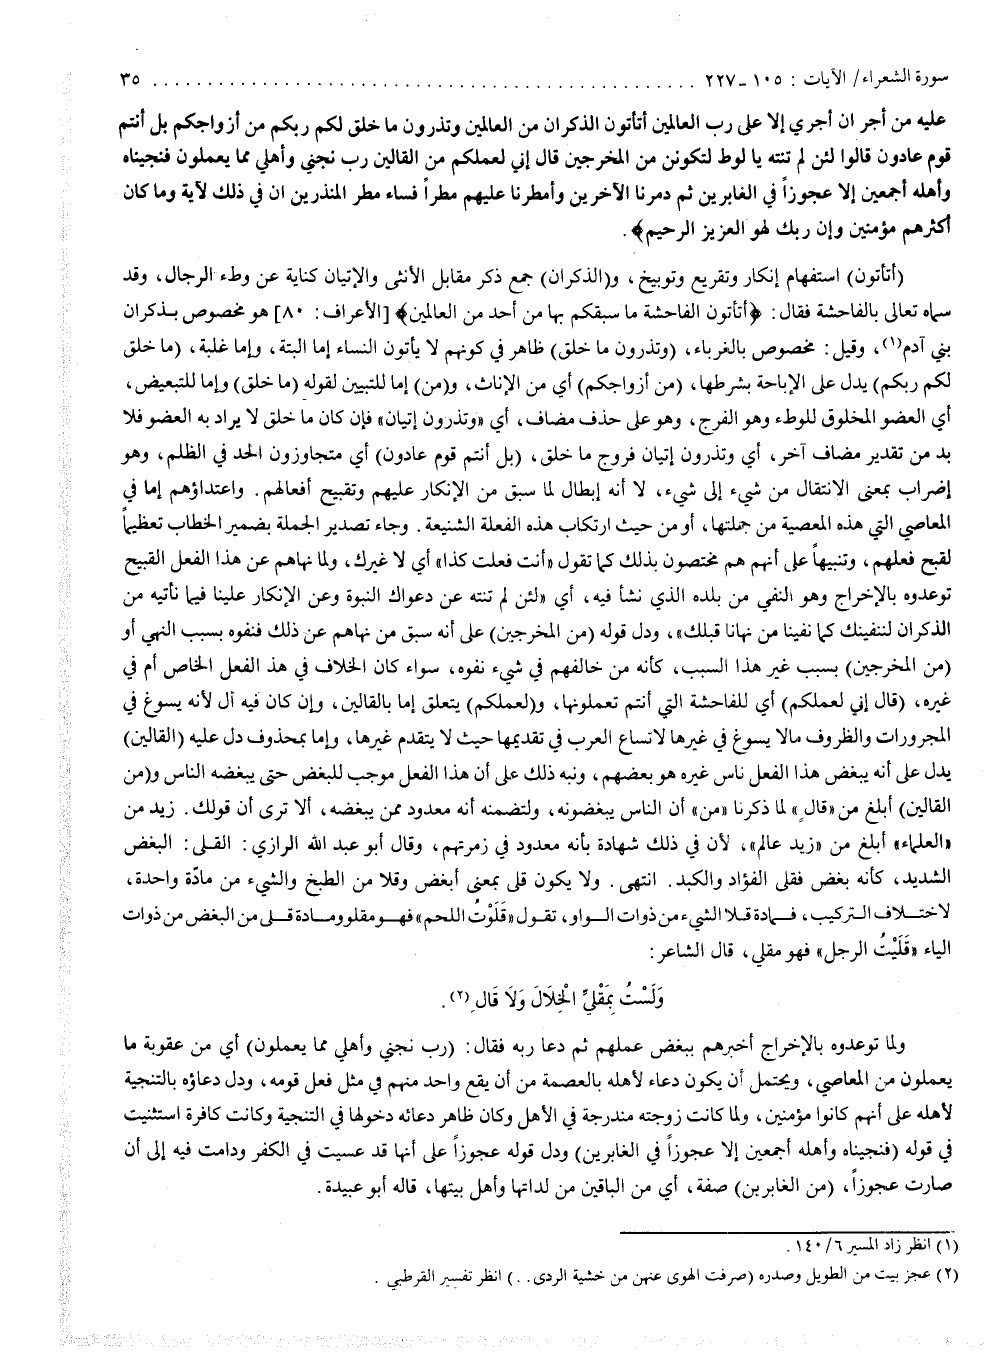 سورة الشعراء/ الآيات : ١٠٥ ـ ٢٢٧ .................................................. ٣٥
عليه من أجر ان أجري إلا على رب العالمين أتأتون الذكران من العالمين وتذرون ما خلق لكم ربكم من أزواجكم بل أنتم
قوم عادون قالوا لئن لم تنته يا لوط لتكونن من المخرجين قال إني لعملكم من القالين رب نجني وأهلي مما يعملون فنجيناه
وأهله أجمعين إلا عجوزاً في الغابرين ثم دمرنا الآخرين وأمطرنا عليهم مطراً فساء مطر المنذرين ان في ذلك لآية وما كان
أكثرهم مؤمنين وإن ربك لهو العزيز الرحيم﴾ .
(أتأتون) استفهام إنكار وتقريع وتوبيخ، و(الذكران) جمع ذكر مقابل الأنثى والإتيان كناية عن وطء الرجال، وقد
سماه تعالى بالفاحشة فقال: ﴿أتأتون الفاحشة ما سبقكم بها من أحد من العالمين﴾ [الأعراف: ٨٠] هو مخصوص بذكران
بني آدم(١)، وقيل: مخصوص بالغرباء، (وتذرون ما خلق) ظاهر في كونهم لا يأتون النساء إما البتة، وإما غلبة، (ما خلق
لكم ربكم) يدل على الإباحة بشرطها، (من أزواجكم) أي من الإناث، و(من) إما للتبيين لقوله (ما خلق) وإما للتبعيض،
أي العضو المخلوق للوطء وهو الفرج، وهو على حذف مضاف، أي «وتذرون إتيان» فإن كان ما خلق لا يراد به العضو فلا
بد من تقدير مضاف آخر، أي وتذرون إتيان فروج ما خلق، (بل أنتم قوم عادون) أي متجاوزون الحد في الظلم، وهو
إضراب بمعنى الانتقال من شيء إلى شيء، لا أنه إبطال لما سبق من الإنكار عليهم وتقبيح أفعالهم. واعتداؤهم إما في
المعاصي التي هذه المعصية من جملتها، أو من حيث ارتكاب هذه الفعلة الشنيعة. وجاء تصدير الجملة بضمير الخطاب تعظيماً
لقبح فعلهم، وتنبيهاً على أنهم هم مختصون بذلك كما تقول «أنت فعلت كذا» أي لا غيرك، ولما نهاهم عن هذا الفعل القبيح
توعدوه بالإخراج وهو النفي من بلده الذي نشأ فيه، أي «لئن لم تنته عن دعواك النبوة وعن الإنكار علينا فيما نأتيه من
الذكران لننفينك كما نفينا من نهانا قبلك»، ودل قوله (من المخرجين) على أنه سبق من نهاهم عن ذلك فنفوه بسبب النهي أو
(من المخرجين) بسبب غير هذا السبب، كأنه من خالفهم في شيء نفوه، سواء كان الخلاف في هذ الفعل الخاص أم في
غيره، (قال إني لعملكم) أي للفاحشة التي أنتم تعملونها، و(لعملكم) يتعلق إما بالقالين، وإن كان فيه أل لأنه يسوغ في
المجرورات والظروف مالا يسوغ في غيرها لاتساع العرب في تقديمها حيث لا يتقدم غيرها، وإما بمحذوف دل عليه (القالين)
يدل على أنه يبغض هذا الفعل ناس غيره هو بعضهم، ونبه ذلك على أن هذا الفعل موجب للبغض حتى يبغضه الناس و(من
القالين) أبلغ من «قالٍ» لما ذكرنا «من» أن الناس يبغضونه، ولتضمنه أنه معدود ممن يبغضه، ألا ترى أن قولك. زيد من
«العلماء» أبلغ من «زيد عالم»، لأن في ذلك شهادة بأنه معدود في زمرتهم، وقال أبو عبد الله الرازي: القلى: البغض
الشديد، كأنه بغض فقلى الفؤاد والكبد. انتهى. ولا يكون قلى بمعنى أبغض وقلا من الطبخ والشيء من مادّة واحدة،
لاختلاف التركيب، فمادة قلا الشيء من ذوات الواو، تقول «قَلَوْتُ اللحم» فهو مقلو ومادة قلى من البغض من ذوات
الياء «قَلَيْتُ الرجل» فهو مقلي، قال الشاعر:
وَلَسْتُ بِمَقْلِيِّ الْخِلَالَ وَلَا قَالِ(٢).
ولما توعدوه بالإخراج أخبرهم ببغض عملهم ثم دعا ربه فقال: (رب نجني وأهلي مما يعملون) أي من عقوبة ما
يعملون من المعاصي، ويحتمل أن يكون دعاء لأهله بالعصمة من أن يقع واحد منهم في مثل فعل قومه، ودل دعاؤه بالتنجية
لأهله على أنهم كانوا مؤمنين، ولما كانت زوجته مندرجة في الأهل وكان ظاهر دعائه دخولها في التنجية وكانت كافرة استثنيت
في قوله (فنجيناه وأهله أجمعين إلا عجوزاً في الغابرين) ودل قوله عجوزاً على أنها قد عسيت في الكفر ودامت فيه إلى أن
صارت عجوزاً، (من الغابرين) صفة، أي من الباقين من لداتها وأهل بيتها، قاله أبو عبيدة.
(١) انظر زاد المسير ١٤٠/٦ .
(٢) عجز بيت من الطويل وصدره (صرفت الهوى عنهن من خشية الردى. .) انظر تفسير القرطبي .